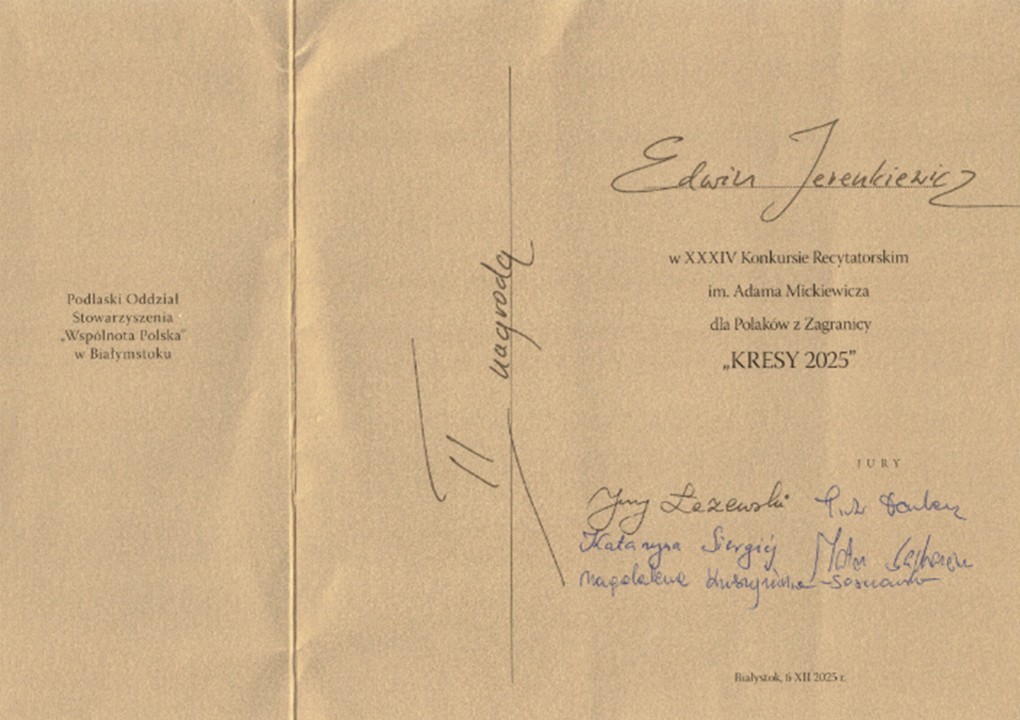 Podlaski Oddział
Stowarzyszenia
„Wspólnota Polska”
w Białymstoku
II nagroda
Edwin Jerenkiewicz
w XXXIV Konkursie Recytatorskim
im. Adama Mickiewicza
dla Polaków z Zagranicy
„KRESY 2025”
JURY
Jerzy Łazewski
Katarzyna Siergiej
Magdalena
Białystok, 6 XII 2025 r.